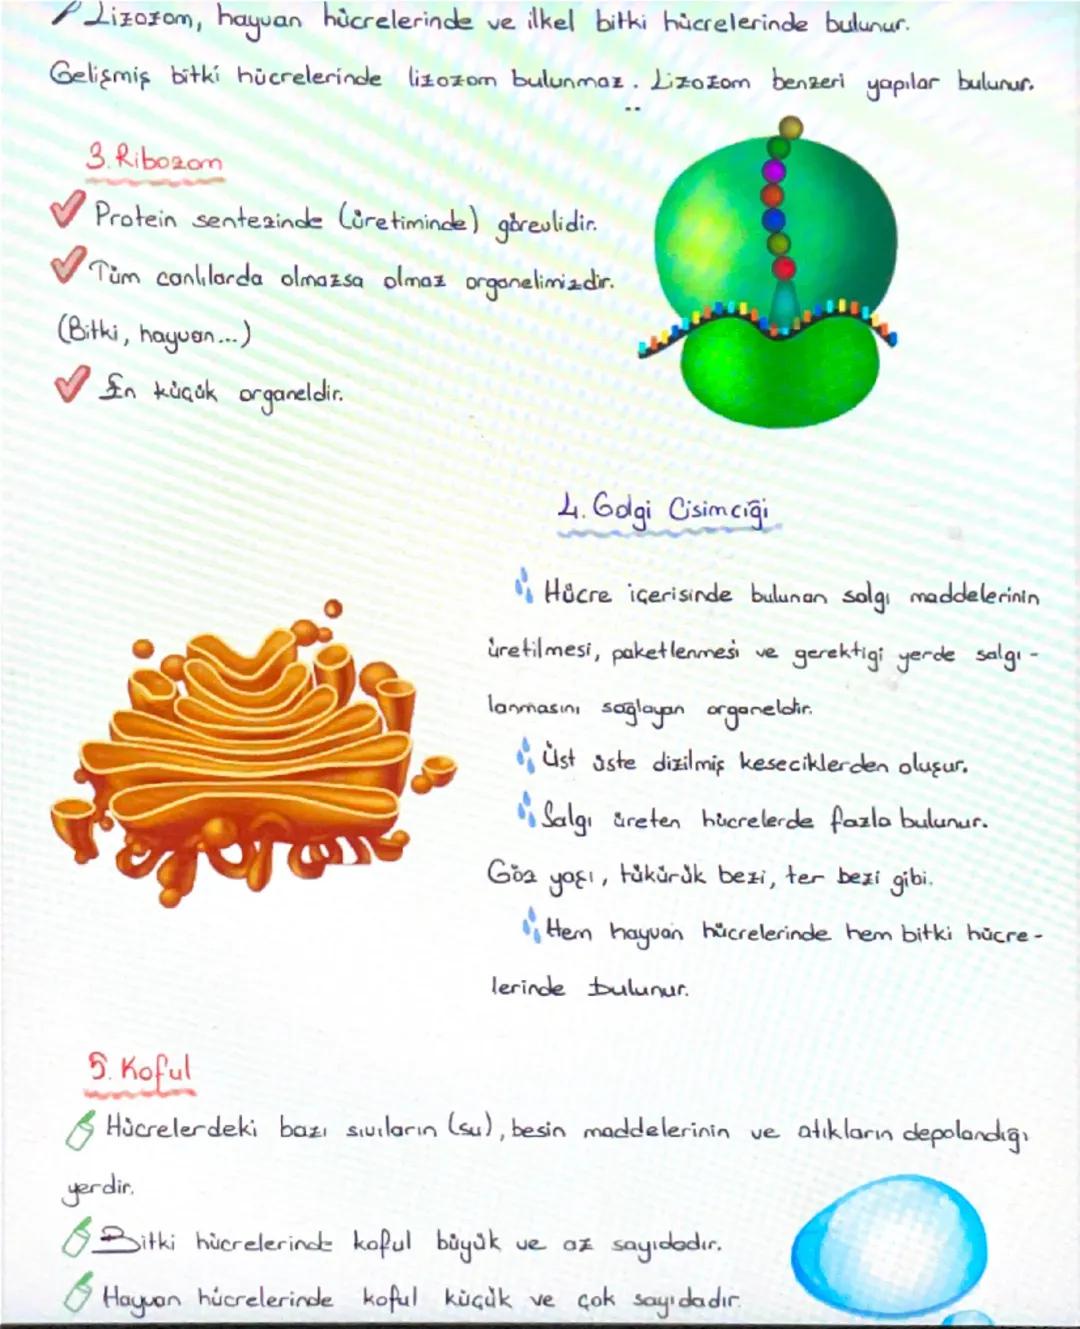 Lizozom, hayvan hücrelerinde ve ilkel bitki hücrelerinde bulunur.
Gelişmiş bitki hücrelerinde lizozom bulunmaz. Lizozom benzeri yapılar bulunur.
3. Ribozom
Protein sentezinde (üretiminde) görevlidir.
Tüm canlılarda olmazsa olmaz organelimizdir.
(Bitki, hayvan...)
En küçük organeldir.
4. Golgi Cisimciği
Hücre içerisinde bulunan salgı maddelerinin
üretilmesi, paketlenmesi ve gerektigi yerde salgı-
lanmasını sağlayan organeldir.
Üst üste dizilmiş keseciklerden oluşur.
Salgı üreten hücrelerde fazla bulunur.
Göz yaşı, tükürük bezi, ter bezi gibi.
Hem hayvan hücrelerinde hem bitki hücre-
lerinde bulunur.
5. Koful
Hücrelerdeki bazı sıvıların (su), besin maddelerinin ve atıkların depolandığı
yerdir.
Bitki hücrelerinde koful büyük ve az sayıdadır.
Hayvan hücrelerinde koful küçük ve çok sayıdadır.